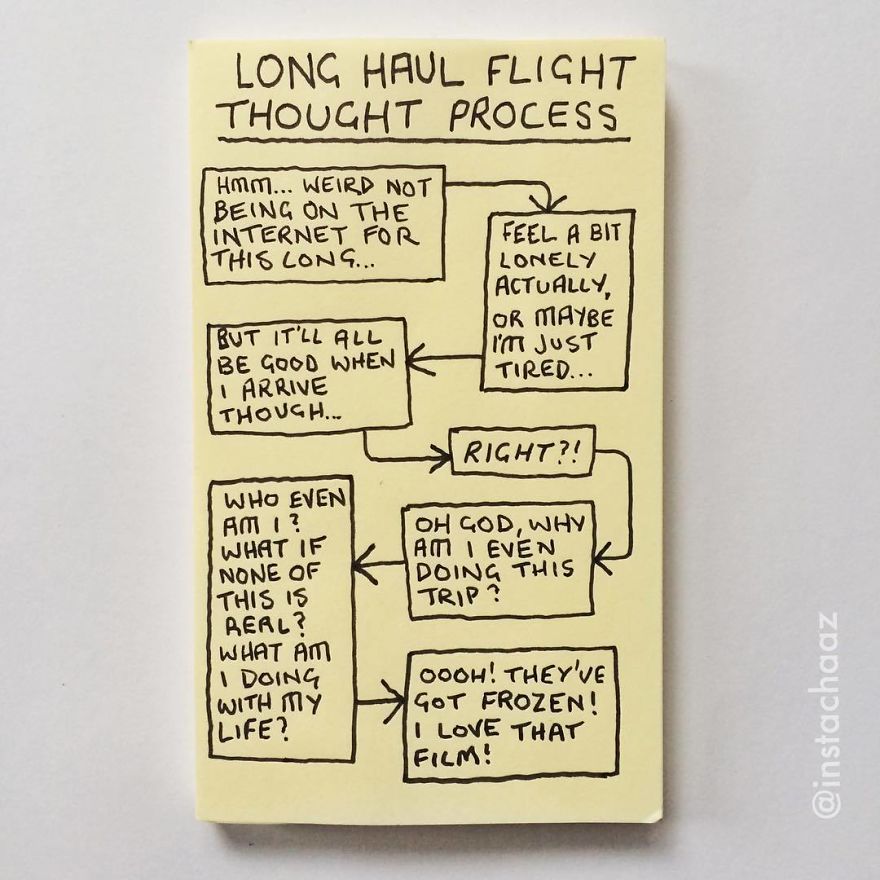 LONG HAUL FLIGHT
THOUGHT PROCESS
HMM... WEIRD NOT
BEING ON THE
INTERNET FOR
THIS LONG...
FEEL A BIT
LONELY
ACTUALLY,
OR MAYBE
I'M JUST
TIRED...
BUT IT'LL ALL
BE GOOD WHEN
I ARRIVE
THOUGH...
RIGHT?!
OH GOD, WHY
AM I EVEN
DOING THIS
TRIP?
WHO EVEN
AM I?
WHAT IF
NONE OF
THIS IS
REAL?
WHAT AM
I DOING
WITH MY
LIFE?
OOOH! THEY'VE
GOT FROZEN!
I LOVE THAT
FILM!
@instachaaz